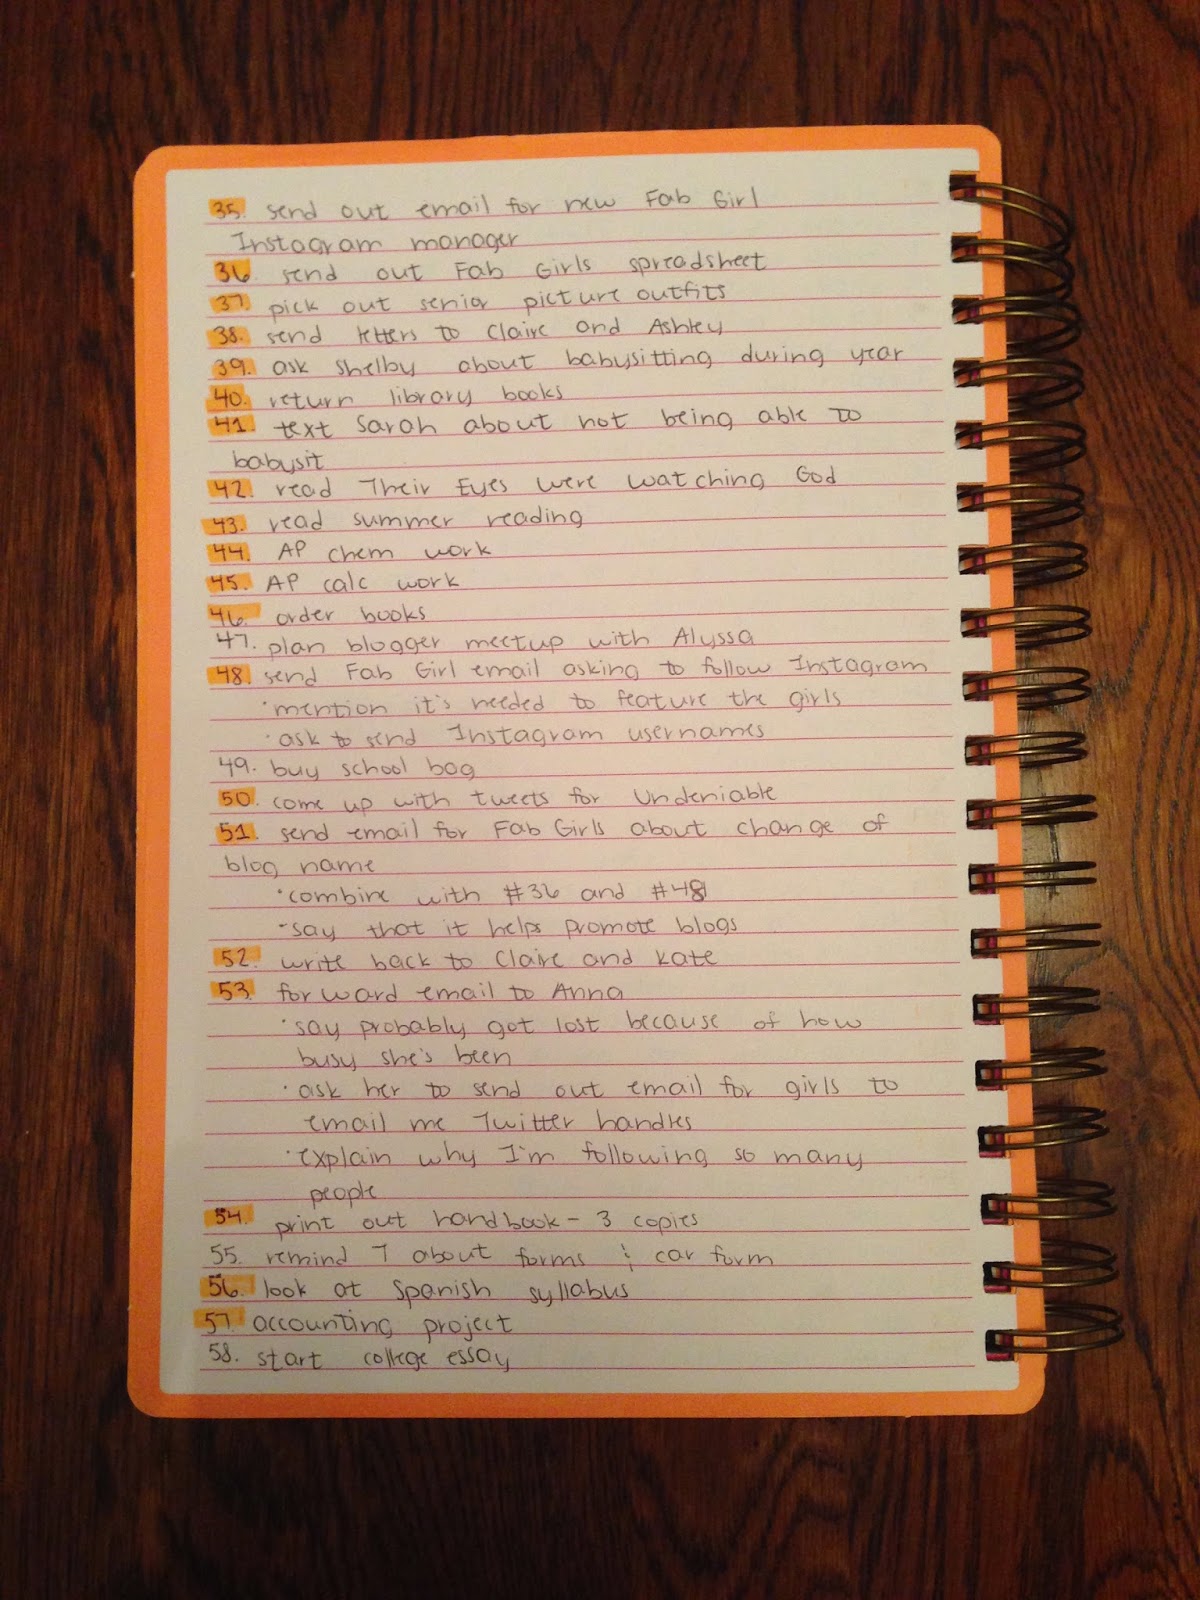 35. send out email for new Fab Girl
Instagram manager
36. send out Fab Girls spreadsheet
37. pick out senior picture outfits
38. send letters to Claire and Ashley
39. ask Shelby about babysitting during year
40. return library books
41. text Sarah about not being able to
babysit
42. read Their Eyes Were Watching God
43. read summer reading
44. AP chem work
45. AP calc work
46. order books
47. plan blogger meetup with Alyssa
48. send Fab Girl email asking to follow Instagram
·mention it's needed to feature the girls
·ask to send Instagram usernames
49. buy school bag
50. come up with tweets for Undeniable
51. send email for Fab Girls about change of
blog name
·combine with #36 and #48
-say that it helps promote blogs
52. write back to Claire and Kate
53. forward email to Anna
·say probably got lost because of how
busy she's been
·ask her to send out email for girls to
email me Twitter handles
·explain why I'm following so many
people
54. print out handbook - 3 copies
55. remind T about forms & car form
56. look at Spanish syllabus
57. accounting project
58. start college essay